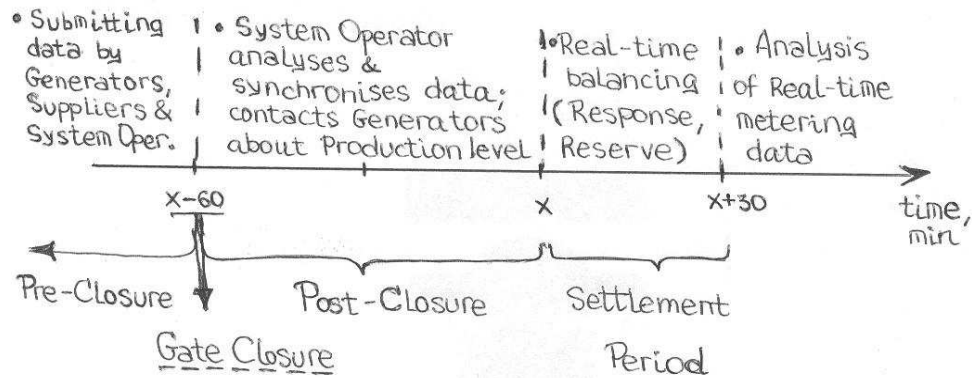 • Submitting
data by
Generators,
Suppliers &
System Oper.
• System Operator
analyses &
synchronises data;
contacts Generators
about Production level
• Real-time
balancing
(Response,
Reserve)
• Analysis
of Real-time
metering
data
x-60
x
x+30
time,
min
Pre-Closure
Post-Closure
Settlement
Period
Gate Closure